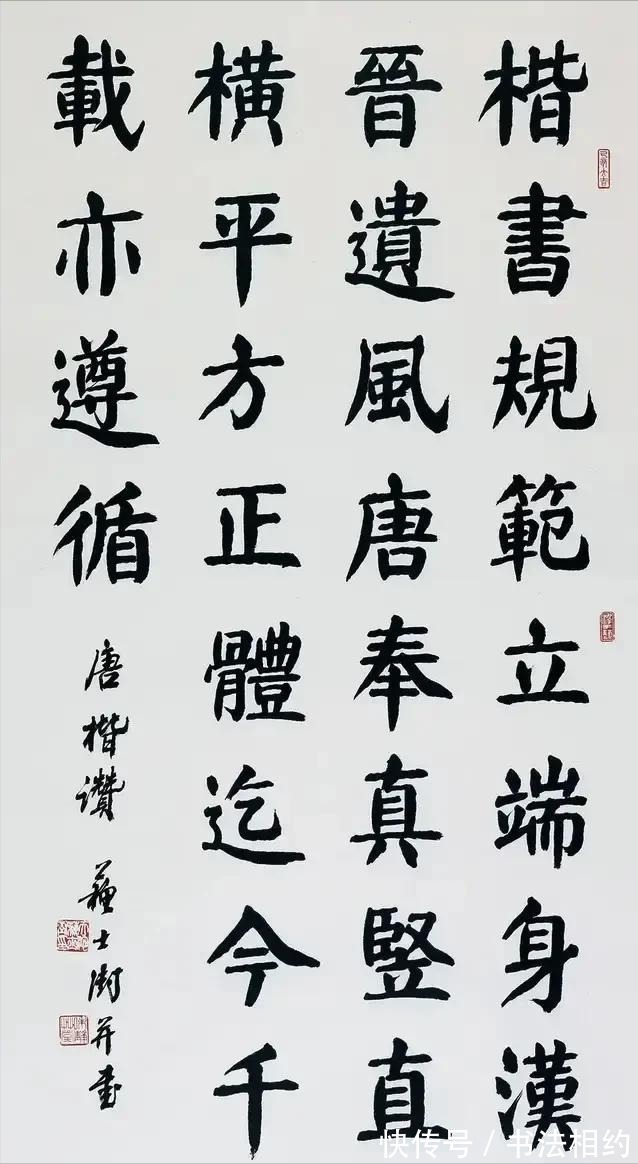 楷書規範立端身漢
晉遺風唐奉真竪直
橫平方正體迄今千
載亦遵循
唐楷讚 蘇士澍并書
快传号 / 书法相约